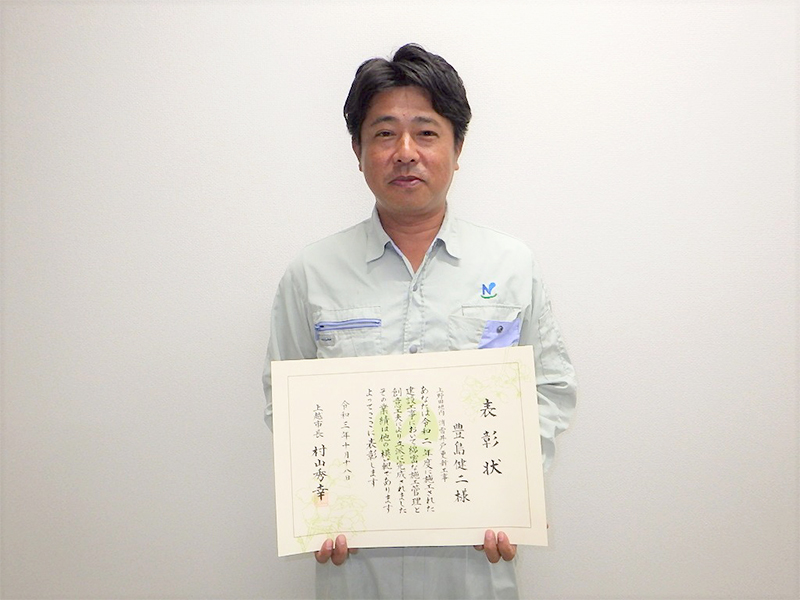 表彰状
豊島健二様
上野田地内 消雪井戸更新工事
あなたは令和二年度に施工された
建設工事において綿密な施工管理と
創意工夫により立派に完成されました
その業績は他の模範であります
よってここに表彰します
令和三年十月十八日
上越市長 村山秀幸
N